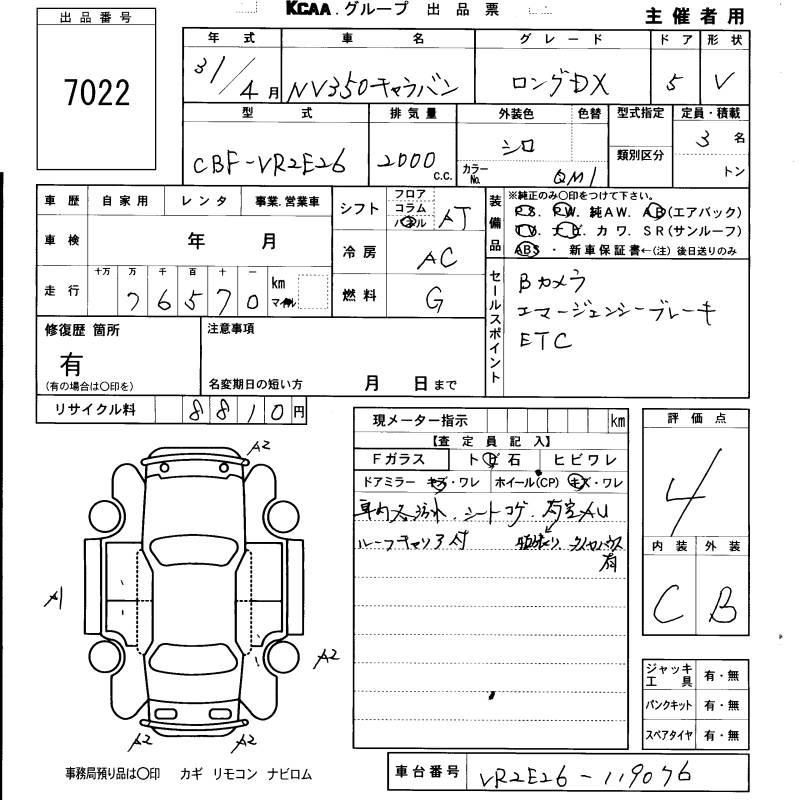 KCAA.グループ 出品票 主催者用
出品番号
7022
年式 車名 グレード ドア 形状
31/4月 NV350キャラバン ロングDX 5 V
型式 排気量 外装色 色替 型式指定 定員・積載
CBF-VR2E26 2000c.c. シロ カラーNo. QM1 類別区分 3名 トン
車歴 自家用 レンタ 事業.営業車
車検 年 月
走行 十万 万 千 百 十 一
76570 km マイル
シフト フロア コラム パネル AT
冷房 AC
燃料 G
装備品 ※純正のみ〇印をつけて下さい。
PS. PW. 純AW. AB(エアバック)
TV. ナビ. カワ. SR(サンルーフ)
ABS ・ 新車保証書←(注)後日送りのみ
セールスポイント
Bカメラ
エマージェンシーブレーキ
ETC
修復歴 箇所
有
(有の場合は〇印を)
注意事項
名変期日の短い方 月 日まで
リサイクル料 8810円
現メーター指示 km
【査定員記入】
Fガラス トビ石 ヒビワレ
ドアミラー キズ・ワレ ホイール(CP) キズ・ワレ
車内 汚れ.シートコゲ.
ルーフキャリア付
有
評価点
4
内装 外装
C B
A2
A1
A2
A2 A2
ジャッキ工具 有・無
パンクキット 有・無
スペアタイヤ 有・無
事務局預り品は〇印 カギ リモコン ナビロム
車台番号 VR2E26-119076